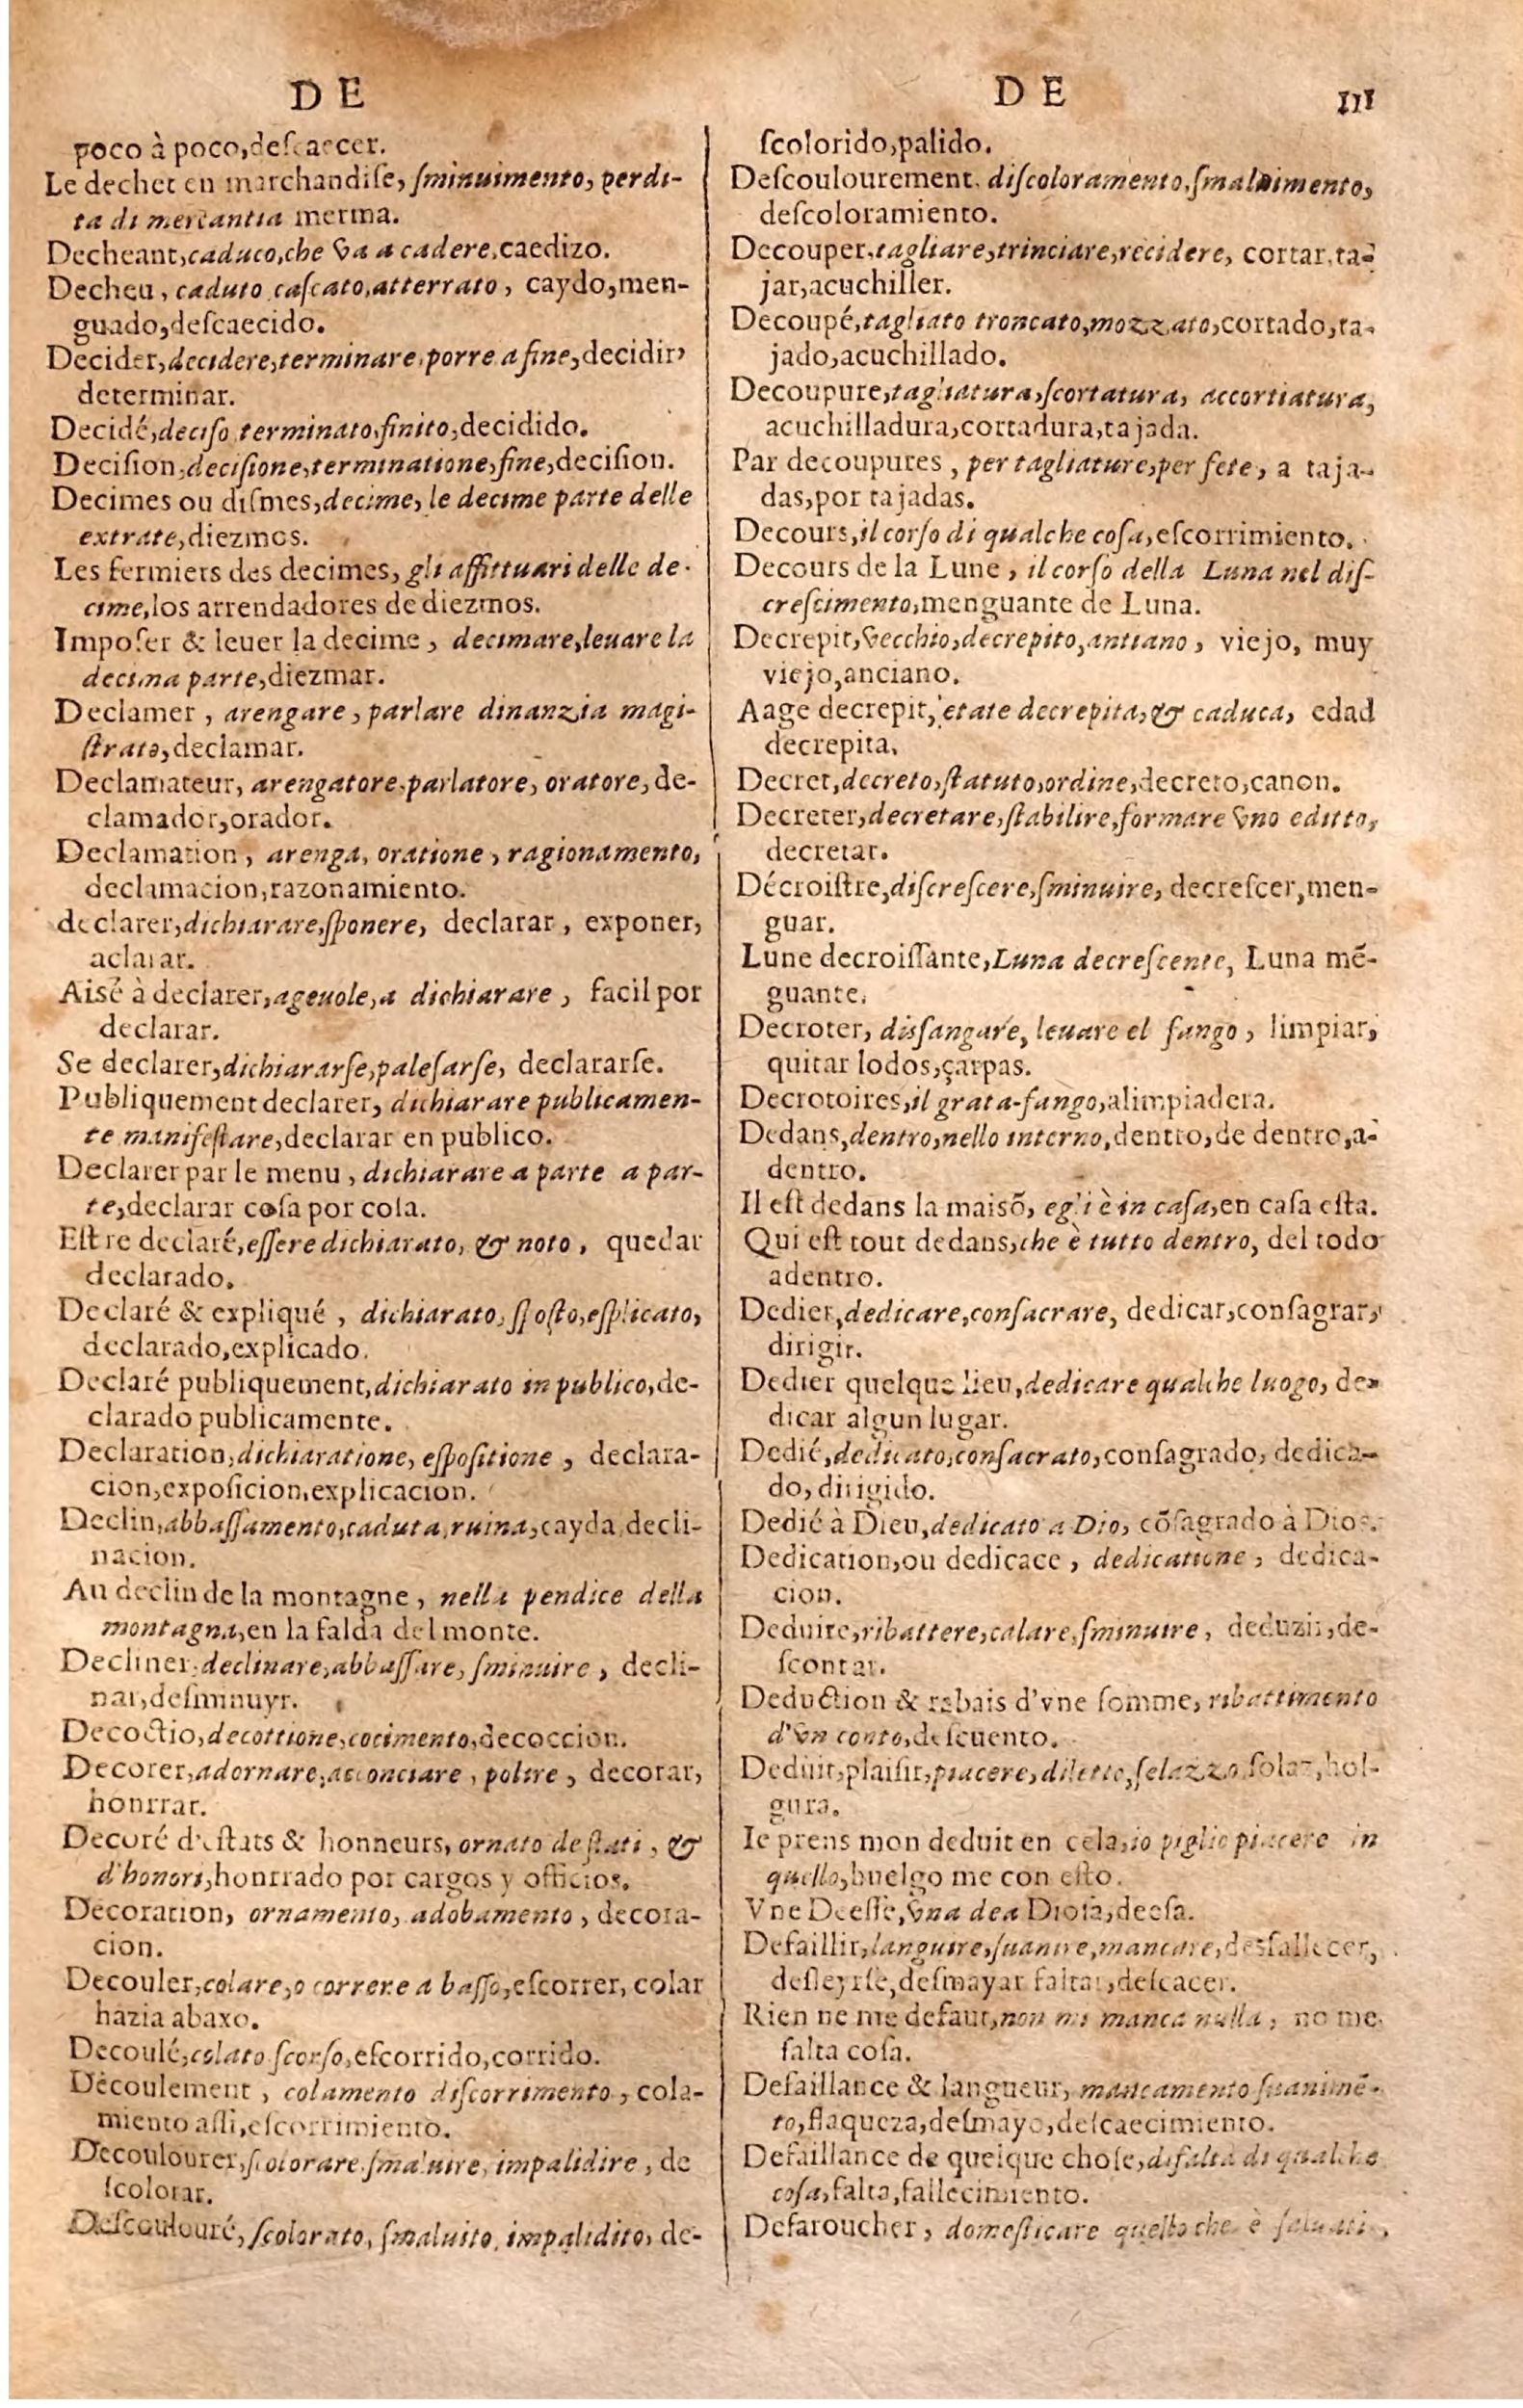 DE
poco à poco,descaecer.
Le dechet en marchandise, sminuimento, perdi-
ta di mercantia merma.
Decheant,caduco,che va a cadere,caedizo.
Decheu, caduto cascato,atterrato, caydo,men-
guado,descaecido.
Decider,decidere,terminare,porre a fine,decidir,
determinar.
Decidé,deciso terminato,finito,decidido.
Decision,decisione,terminatione,fine,decision.
Decimes ou dismes,decime, le decime parte delle
extrate,diezmos.
Les fermiers des decimes, gli affittuari delle de-
cime,los arrendadores de diezmos.
Imposer & leuer la decime, decimare,leuare la
decima parte,diezmar.
Declamer, arengare, parlare dinanzia magi-
strato,declamar.
Declamateur, arengatore,parlatore, oratore, de-
clamador,orador.
Declamation, arenga, oratione, ragionamento,
declamacion,razonamiento.
declarer,dichiarare,sponere, declarar, exponer,
aclarar.
Aisé à declarer,ageuole,a dichiarare, facil por
declarar.
Se declarer,dichiararse,palesarse, declararse.
Publiquement declarer, dichiarare publicamen-
te manifestare,declarar en publico.
Declarer par le menu, dichiarare a parte a par-
te,declarar cosa por cosa.
Estre declaré,essere dichiarato, & noto, quedar
declarado.
Declaré & expliqué, dichiarato, sposto,esplicato,
declarado,explicado.
Declaré publiquement,dichiarato in publico,de-
clarado publicamente.
Declaration,dichiaratione, espositione, declara-
cion,exposicion,explicacion.
Declin,abbassamento,caduta,ruina,cayda,decli-
nacion.
Au declin de la montagne, nella pendice della
montagna,en la falda del monte.
Decliner,declinare,abbassare, sminuire, decli-
nar,desminuyr.
Decoctio,decottione,cocimento,decoccion.
Decorer,adornare,acconciare, polire, decorar,
honrrar.
Decoré d'estats & honneurs, ornato de stati, &
d'honori,honrrado por cargos y officios.
Decoration, ornamento, adobamento, decora-
cion.
Decouler,colare,o correre a basso,escorrer, colar
hazia abaxo.
Decoulé,colato scorso,escorrido,corrido.
Decoulement, colamento discorrimento, cola-
miento assi,escorrimiento.
Decoulourer,scolorare smaluire, impalidire, de
scolorar.
Descoulouré, scolorato, smaluito, impalidito, de-
DE
111
scolorido,palido.
Descoulourement, discoloramento,smaluimento,
descoloramiento.
Decouper,tagliare,trinciare,recidere, cortar,ta-
jar,acuchiller.
Decoupé,tagliato troncato,mozzato,cortado,ta-
jado,acuchillado.
Decoupure,tagliatura,scortatura, accortiatura,
acuchilladura,cortadura,tajada.
Par decoupures, per tagliature,per fete, a taja-
das,por tajadas.
Decours,il corso di qualche cosa,escorrimiento.
Decours de la Lune, il corso della Luna nel dis-
crescimento,menguante de Luna.
Decrepit,vecchio,decrepito,antiano, viejo, muy
viejo,anciano.
Aage decrepit, etate decrepita, & caduca, edad
decrepita.
Decret,decreto,statuto,ordine,decreto,canon.
Decreter,decretare,stabilire,formare vno editto,
decretar.
Décroistre,discrescere,sminuire, decrescer,men-
guar.
Lune decroissante,Luna decrescente, Luna mẽ-
guante.
Decroter, disfangare, leuare el fango, limpiar,
quitar lodos,çarpas.
Decrotoires,il grata-fango,alimpiadera.
Dedans,dentro,nello interno,dentro,de dentro,a-
dentro.
Il est dedans la maisõ, egli è in casa,en casa esta.
Qui est tout dedans,che è tutto dentro, del todo
adentro.
Dedier,dedicare,consacrare, dedicar,consagrar,
dirigir.
Dedier quelque lieu,dedicare qualche luogo, de-
dicar algun lugar.
Dedié,dedicato,consacrato,consagrado, dedica-
do, dirigido.
Dedié à Dieu,dedicato a Dio, cõsagrado à Dios.
Dedication,ou dedicace, dedicatione, dedica-
cion.
Deduire,ribattere,calare,sminuire, deduzir,de-
scontar.
Deduction & rabais d'vne somme, ribattimento
d'vn conto,descuento.
Deduit,plaisir,piacere,diletto,selazzo,solaz,hol-
gura.
Ie prens mon deduit en cela,io piglio piacere in
quello,huelgo me con esto.
Vne Deesse,vna dea Diosa,deesa.
Defaillir,languire,suanire,mancare,desfallecer,
desleyrse,desmayar faltar,descacer.
Rien ne me defaut,non mi manca nulla, no me
falta cosa.
Defaillance & langueur, mancamento suanimẽ-
to,flaqueza,desmayo,descaecimiento.
Defaillance de quelque chose,difalta di qualche
cosa,falta,fallecimiento.
Defaroucher, domesticare quello che è saluati,